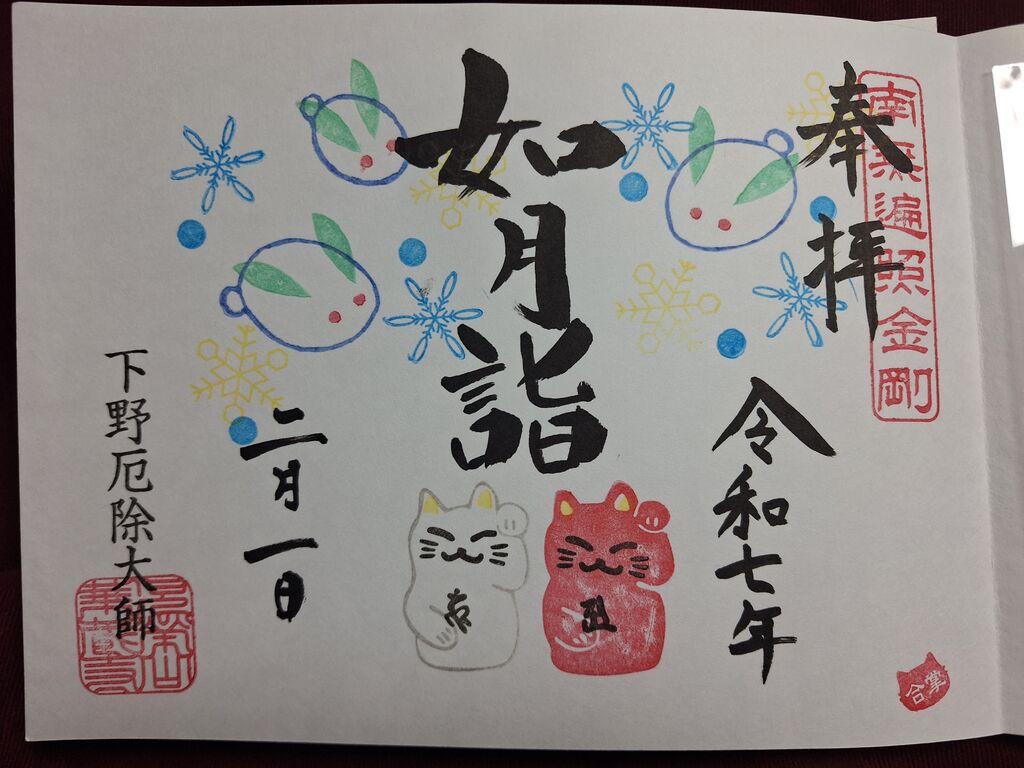 奉拝
南無遍照金剛
令和七年
合掌
如月詣
吉
二月一日
下野厄除大師